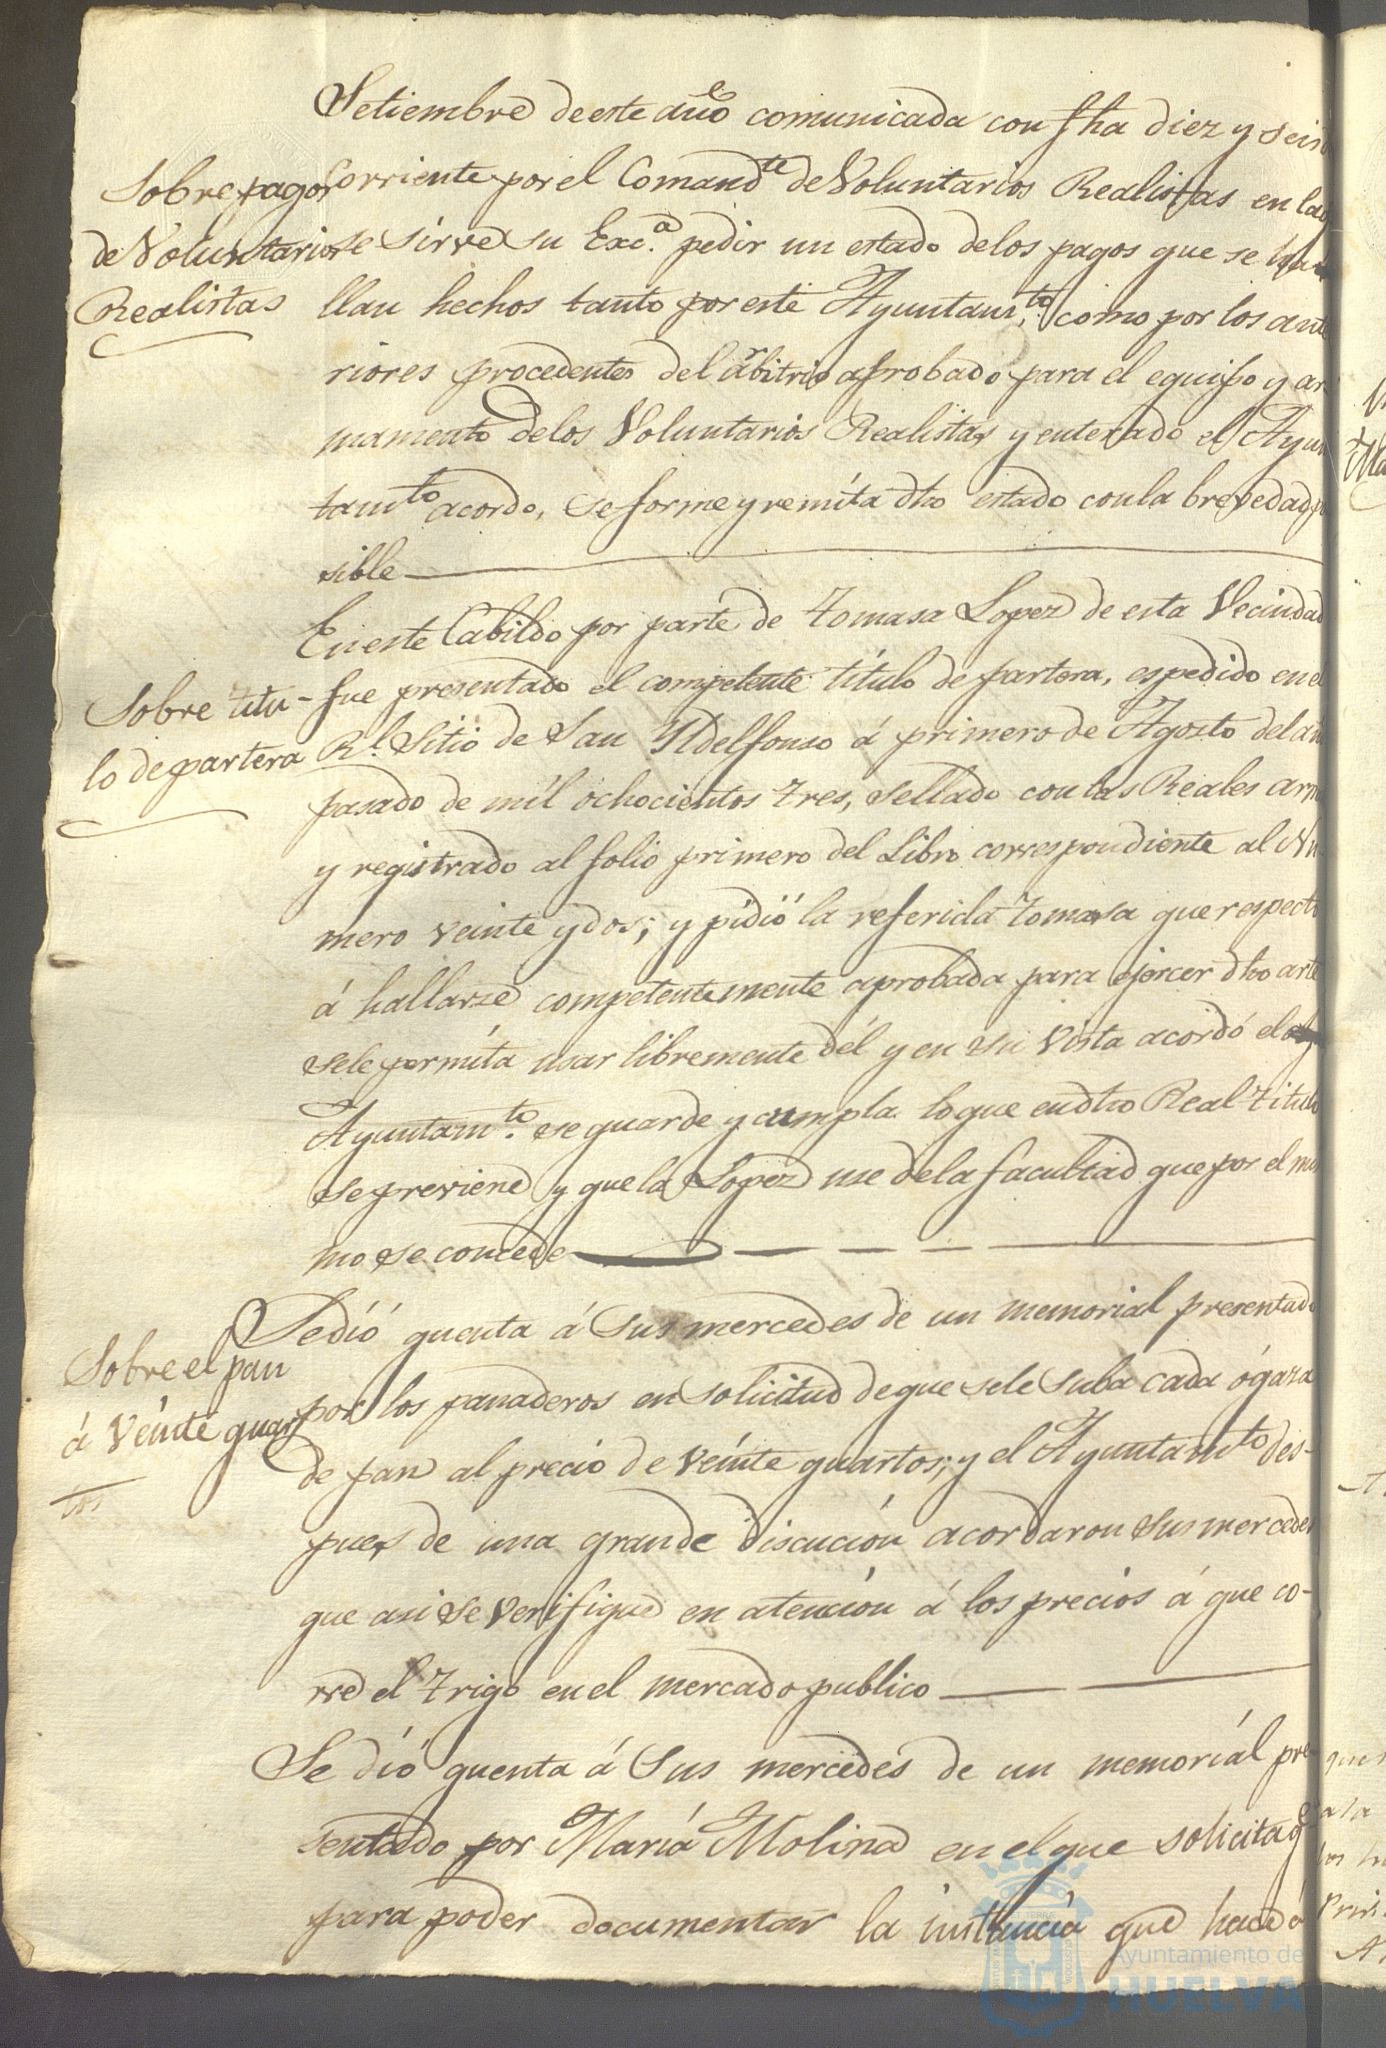 Setiembre de este año comunicada con fha diez y seis
Sobre pagos
de Voluntarios
Realistas
corriente por el Comandte de Voluntarios Realistas en la
se sirve su Exc.a pedir un estado delos pagos que se ha
llan hechos tanto por este Ayuntamto como por los ante
riores procedentes del arbitrio aprobado para el equipo y ar
mamento delos Voluntarios Realistas y enterado el Ayun
tamto acordo, se forme y remita dho estado con la brevedad po
sible
En este Cabildo por parte de Tomasa Lopez de esta Vecindad
Sobre titu-
lo de partera
fue presentado el competente titulo de partera, espedido en el
Rl. Sitio de San Yldelfonso á primero de Agosto del an
pasado de mil ochocientos tres, sellado con las Reales arm
y registrado al folio primero del Libro correspondiente al Nu
mero veinte y dos; y pidió la referida Tomasa que respecto
á hallarse competentemente aprobada para ejercer dho arte
sele permita usar libremente dél y en su vista acordó el
Ayuntamto. se guarde y cumpla lo que en dho Real Titulo
se previene y que la Lopez use dela facultad que por el mis
mo se concede
Sobre el pan
á veinte quar
tos
Sedió quenta á Sus mercedes de un memorial presentado
por los panaderos en solicitud de que sele suba cada ógaza
de pan al precio de veinte quartos; y el Ayuntamto des-
pues de una grande discución acordaron sus mercedes
que asi se verifique en atención á los precios á que co-
rre el trigo en el mercado publico
Se dió quenta á Sus mercedes de un memorial pre
sentado por María Molina en el que solicita qe
para poder documentar la instancia que hace á
Ayuntamiento de
HUELVA